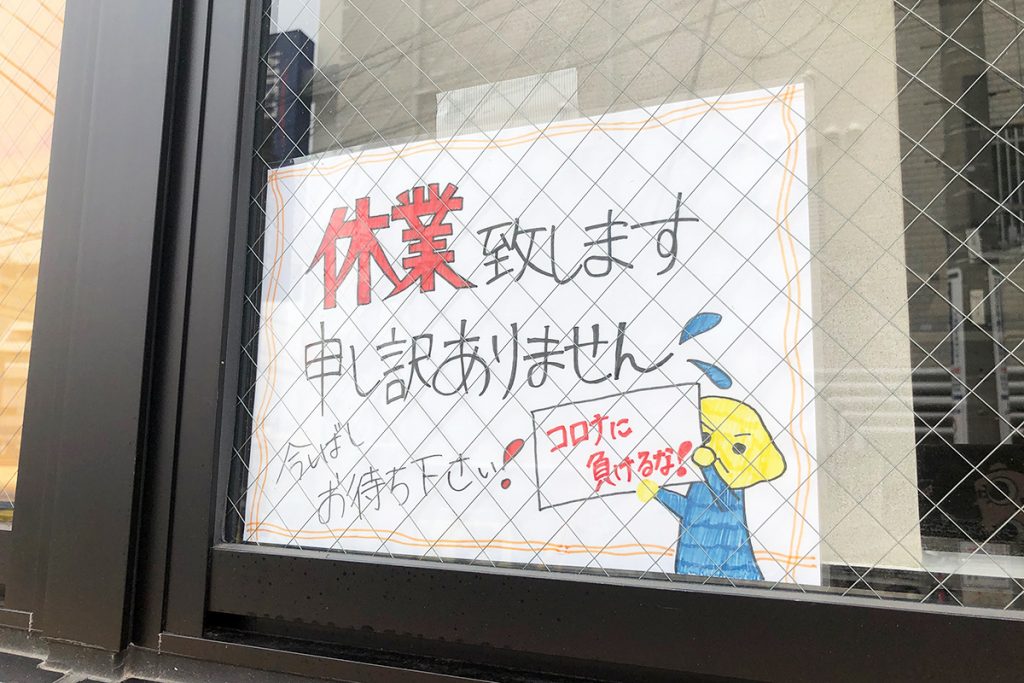 休業致します
申し訳ありません
今しばし
お待ち下さい!
コロナに
負けるな!